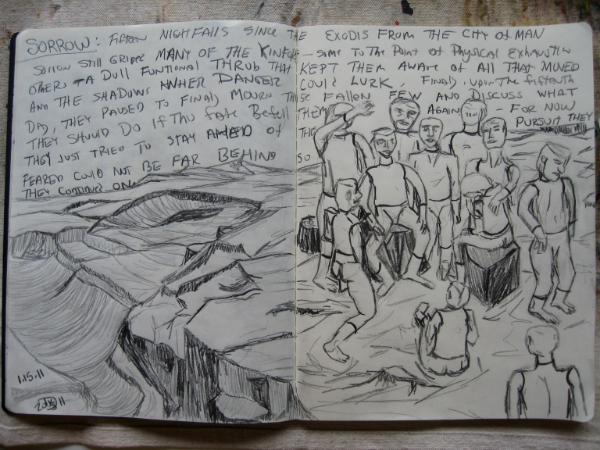 SORROW: FIFTEEN NIGHTFALLS SINCE THE EXODIS FROM THE CITY OF MAN
SORROW STILL GRIPPED MANY OF THE KINFOLK — SOME TO THE POINT OF PHYSICAL EXHAUSTION
OTHERS A DULL FUNTIONAL THROB THAT KEPT THEM AWARE OF ALL THAT MOVED
AND THE SHADOWS WHERE DANGER COULD LURK. FINALLY, UPON THE FIFTEENTH
DAY, THEY PAUSED TO FINALLY MOURN THOSE FALLEN FEW AND DISCUSS WHAT
THEY SHOULD DO IF THIS FATE BEFELL THEM AGAIN — FOR NOW
THEY JUST TRIED TO STAY AHEAD OF THE PURSUIT THEY
FEARED COULD NOT BE FAR BEHIND SO
THEY CONTINUED ON
1.15.11
11